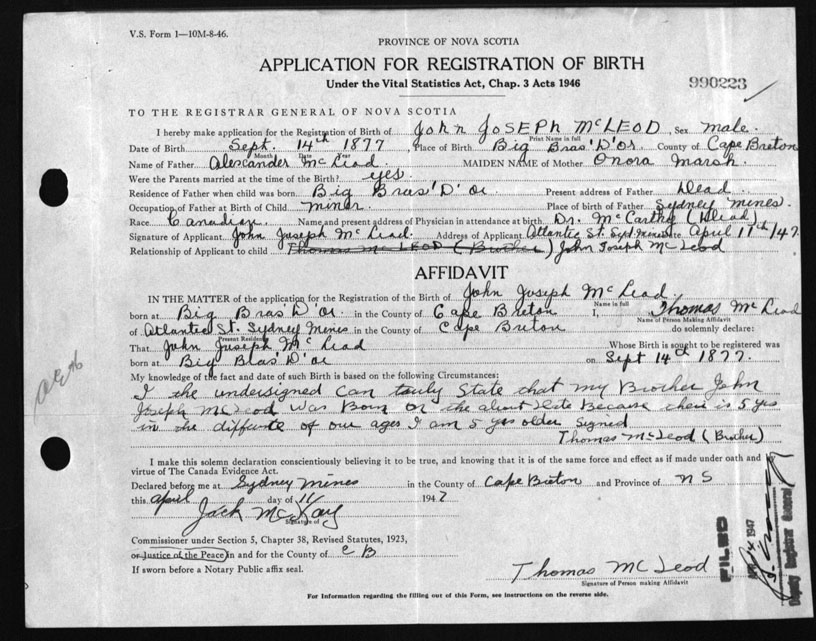 V.S. Form 1—10M-8-46.
PROVINCE OF NOVA SCOTIA
APPLICATION FOR REGISTRATION OF BIRTH
Under the Vital Statistics Act, Chap. 3 Acts 1946
990223
TO THE REGISTRAR GENERAL OF NOVA SCOTIA
I hereby make application for the Registration of Birth of John Joseph McLEOD, Sex male.
Print Name in full
Date of Birth Sept. 14th 1877, Place of Birth Big Bras'D'Or. County of Cape Breton
Month Date Year
Name of Father Alexander McLeod MAIDEN NAME of Mother Onora Marsh.
Were the Parents married at the time of the Birth? yes.
Residence of Father when child was born Big Bras'D'or Present address of Father Dead.
Occupation of Father at Birth of Child miner Place of birth of Father Sydney Mines.
Race Canadian. Name and present address of Physician in attendance at birth Dr. McCarthy (Dead)
Signature of Applicant John Joseph McLeod. Address of Applicant Atlantic St. Syd. Mines Date April 11th/47.
Relationship of Applicant to child Thomas McLEOD (Brother) John Joseph McLeod
AFFIDAVIT
IN THE MATTER of the application for the Registration of the Birth of John Joseph McLeod.
Name in full
born at Big Bras'D'Or. in the County of Cape Breton I, Thomas McLeod
Name of Person Making Affidavit
of Atlantic St. Sydney Mines in the County of Cape Breton do solemnly declare:
Present Residence
That John Joseph McLeod Whose Birth is sought to be registered was
born at Big Blas'D'or on Sept 14th 1877.
My knowledge of the fact and date of such Birth is based on the following Circumstances:
I the undersigned Can truly State that my Brother John
Joseph McLeod was Born on the above date Because their is 5 yrs
in the diffrence of our ages I am 5 yrs older Signed
Thomas McLeod (Brother)
I make this solemn declaration conscientiously believing it to be true, and knowing that it is of the same force and effect as if made under oath and
virtue of The Canada Evidence Act.
Declared before me at Sydney Mines in the County of Cape Breton and Province of NS
this April day of 11 1947
Jack McKay
Signature of
Commissioner under Section 5, Chapter 38, Revised Statutes, 1923,
or Justice of the Peace in and for the County of CB
If sworn before a Notary Public affix seal.
Thomas McLeod
Signature of Person making Affidavit
FILED
14 1947
Deputy Registrar General
For Information regarding the filling out of this Form, see instructions on the reverse side.